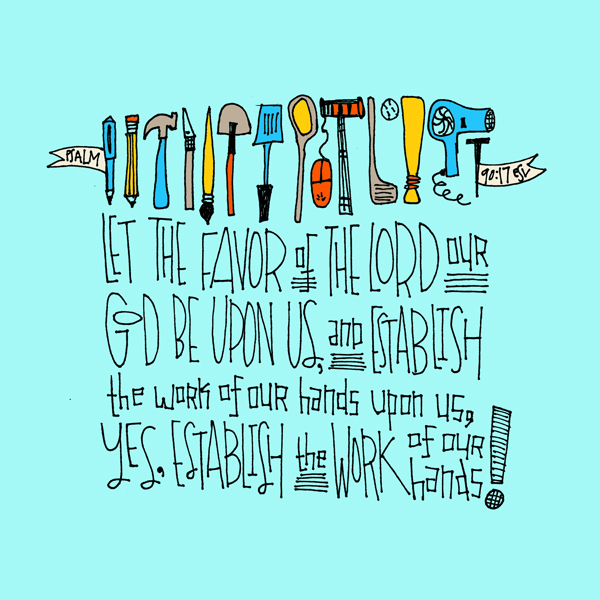 PSALM
90:17 ESV
LET THE FAVOR of THE LORD our
GOD BE UPON US, and ESTABLISH
the work of our hands upon us,
YES, ESTABLISH the WORK of our
hands!